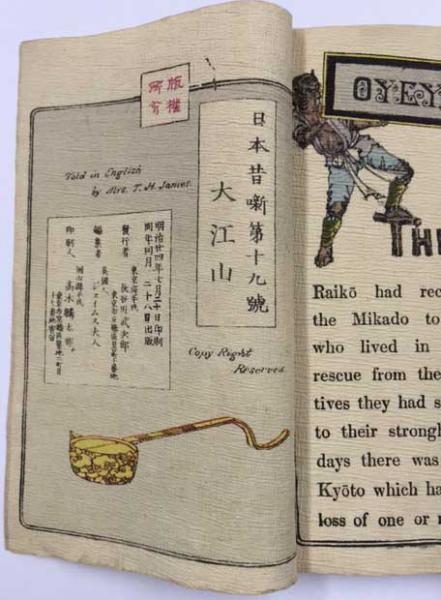 版權
所有
日本昔噺第十九號
大江山
Told in English
by Mrs. T. H. James.
明治廿四年七月二十日印刷
同年同月二十八日出版
東京府平民
發行者 長谷川武次郎
編集者 英國人 ジェイムス夫人
印刷人
Copy Right
Reserved.
OYEY
TH
Raikō had rec
the Mikado to
who lived in
rescue from the
tives they had s
to their strongh
days there was
Kyōto which ha
loss of one or